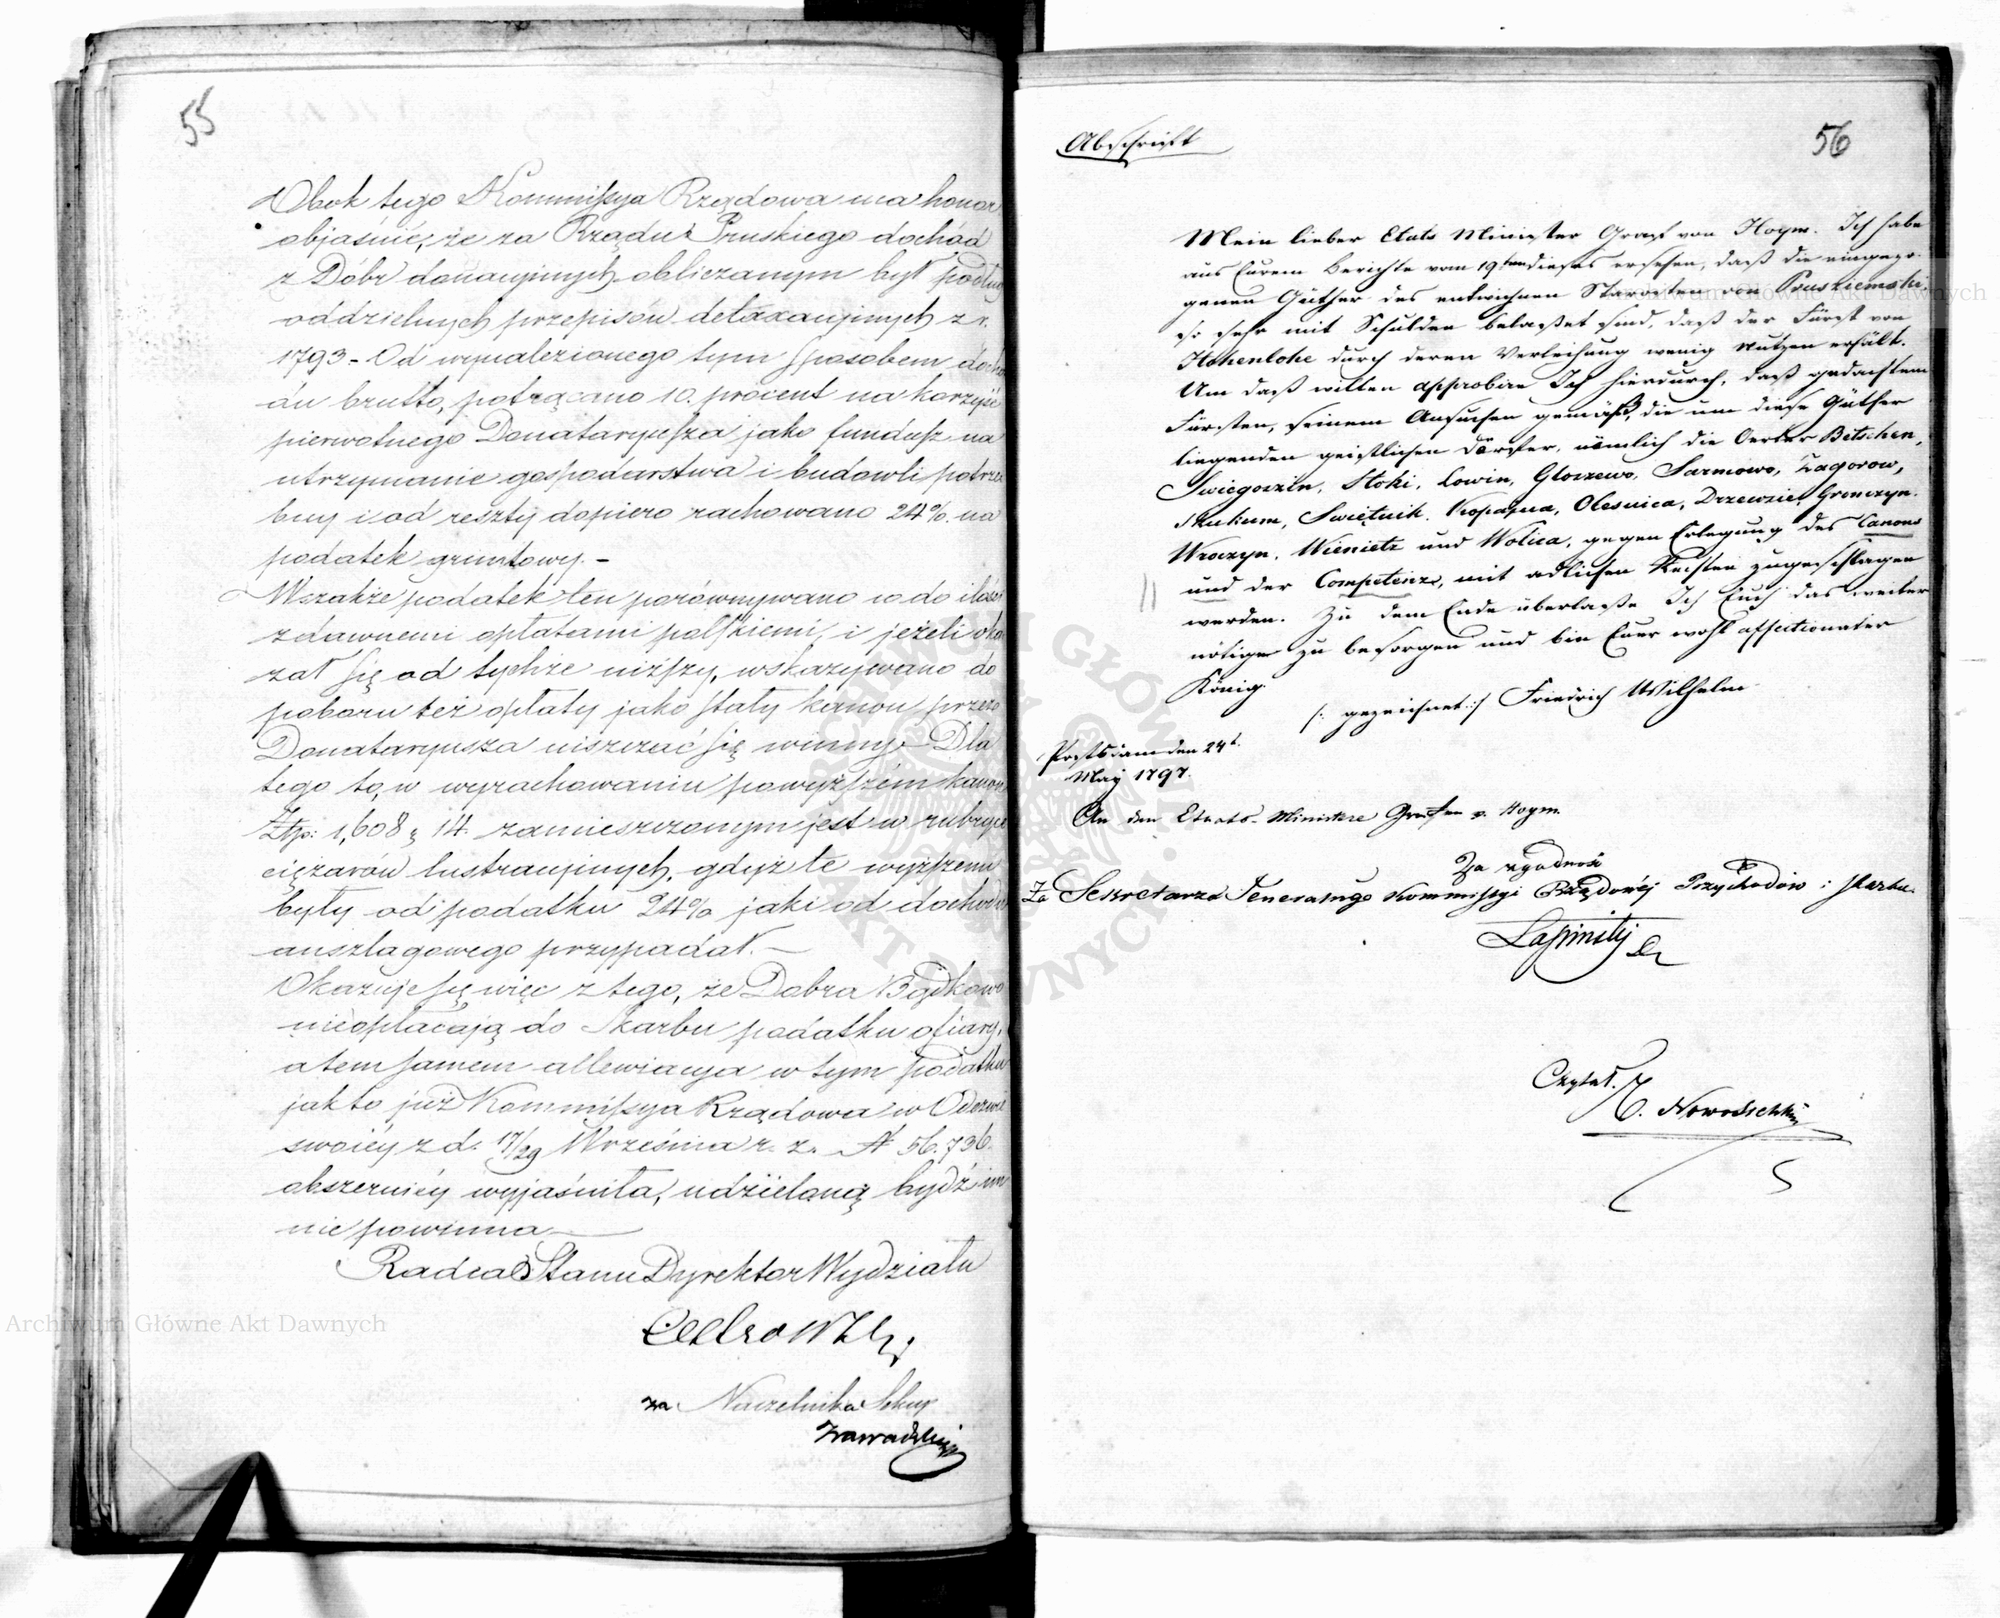 55
Obok tego Kommissya Rządowa ma honor
objaśnić, że za Rządu Pruskiego dochód
z Dóbr donacyjnych obliczanym był podług
oddzielnych przepisów detaxacyjnych z r.
1793 - Od wynalezionego tym sposobem docho
du brutto, potrącano 10. procent na korzyść
pierwotnego Donataryusza jako fundusz na
utrzymanie gospodarstwa i budowli potrze
bny i od reszty dopiero rachowano 24% na
podatek gruntowy. -
Wszakże podatek ten porównywano co do ilości
z dawnemi opłatami polskiemi, i jeżeli oka
zał się od tychże niższy, wskazywano do
poboru też opłaty jako stały kanon przez
Donataryusza uiszczać się winny - Dla
tego to, w wyrachowaniu powyższém kanon
Złp: 1,608 g 14. zamieszczonym jest w rubryce
ciężarów lustracyjnych, gdyż te wyższemi
były od podatku 24% jaki od dochodu
anszlagowego przypadał. -
Okazuje się więc z tego, że Dobra Bądkowo
nieopłacają do Skarbu podatku ofiary,
a tem samem allewiacya w tym podatku
jak to już Kommissya Rządowa w Odezwie
swoiéy z d. 17/29 Września r. z. N 56.736.
obszerniéy wyjaśniła, udzieloną bydź im
nie powinna -
Radca Stanu Dyrektor Wydziału
za Naczelnika Sekcyi
Zawadzki
56
Abschrift
Mein lieber Etats Minister Graf von Hoym. Ich habe
aus Eurem Berichte vom 19ten dieses ersehen, daß die eingezo-
genen Güther des entwichnen Starosten von
so sehr mit Schulden belastet sind, daß der Fürst von
Hohenlohe durch deren Verleihung wenig Nutzen erhält.
Um daß willen approbire Ich hierdurch, daß gedachtem
Fürsten, seinem Ansuchen gemäß, die um diese Güther
liegenden geistlichen Dörfer, nämlich die Oerter Betschen,
Swiegoczin, Stoki, Lowin, Gloszewo, Sarnowo, Zagorow,
Skukum, Swiętnik, Kopayna, Olesnica, Drzewcie, Gronczyn.
Wraczyn, Wienietz und Wolica, gegen Erlegung des Canons
und der Competenz, mit adlichen Rechten zugeschlagen
werden. Zu dem Ende überlaße Ich Euch das weiter
nötige zu besorgen und bin Euer wohl affectionater
König.
/: gezeichnet :/ Friedrich Wilhelm
Potsdam den 24t.
May 1797.
An den Etaats-Ministre Grafen v. Hoym.
Za zgodność
Za Sekretarza Jeneralnego Kommissyi Rządowéj Przychodów i Skarbu.
Czytał.